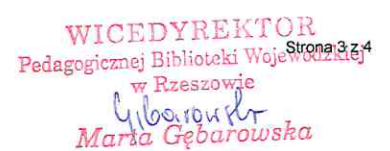 WICEDYREKTOR
Strona 3 z 4
Pedagogicznej Biblioteki Wojewódzkiej
w Rzeszowie
Gębarowska
Marta Gębarowska